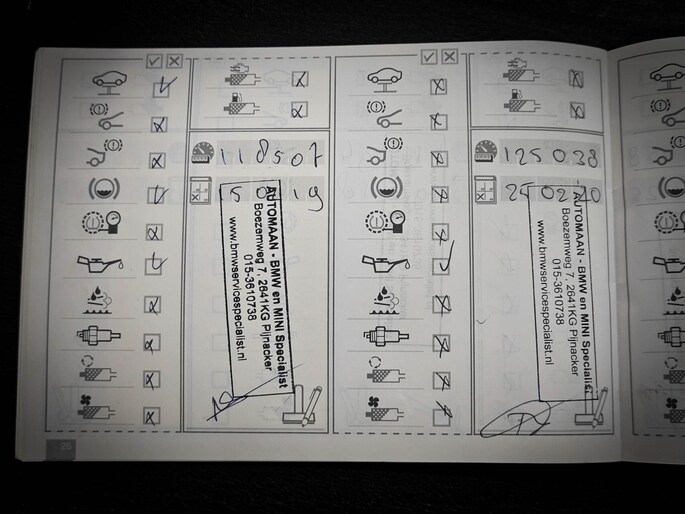 118507
AUTOMAAN - BMW en MINI Specialist
Boezemweg 7, 2641KG Pijnacker
015-3610738
www.bmwservicespecialist.nl
125038
AUTOMAAN - BMW en MINI Specialist
Boezemweg 7, 2641KG Pijnacker
015-3610738
www.bmwservicespecialist.nl